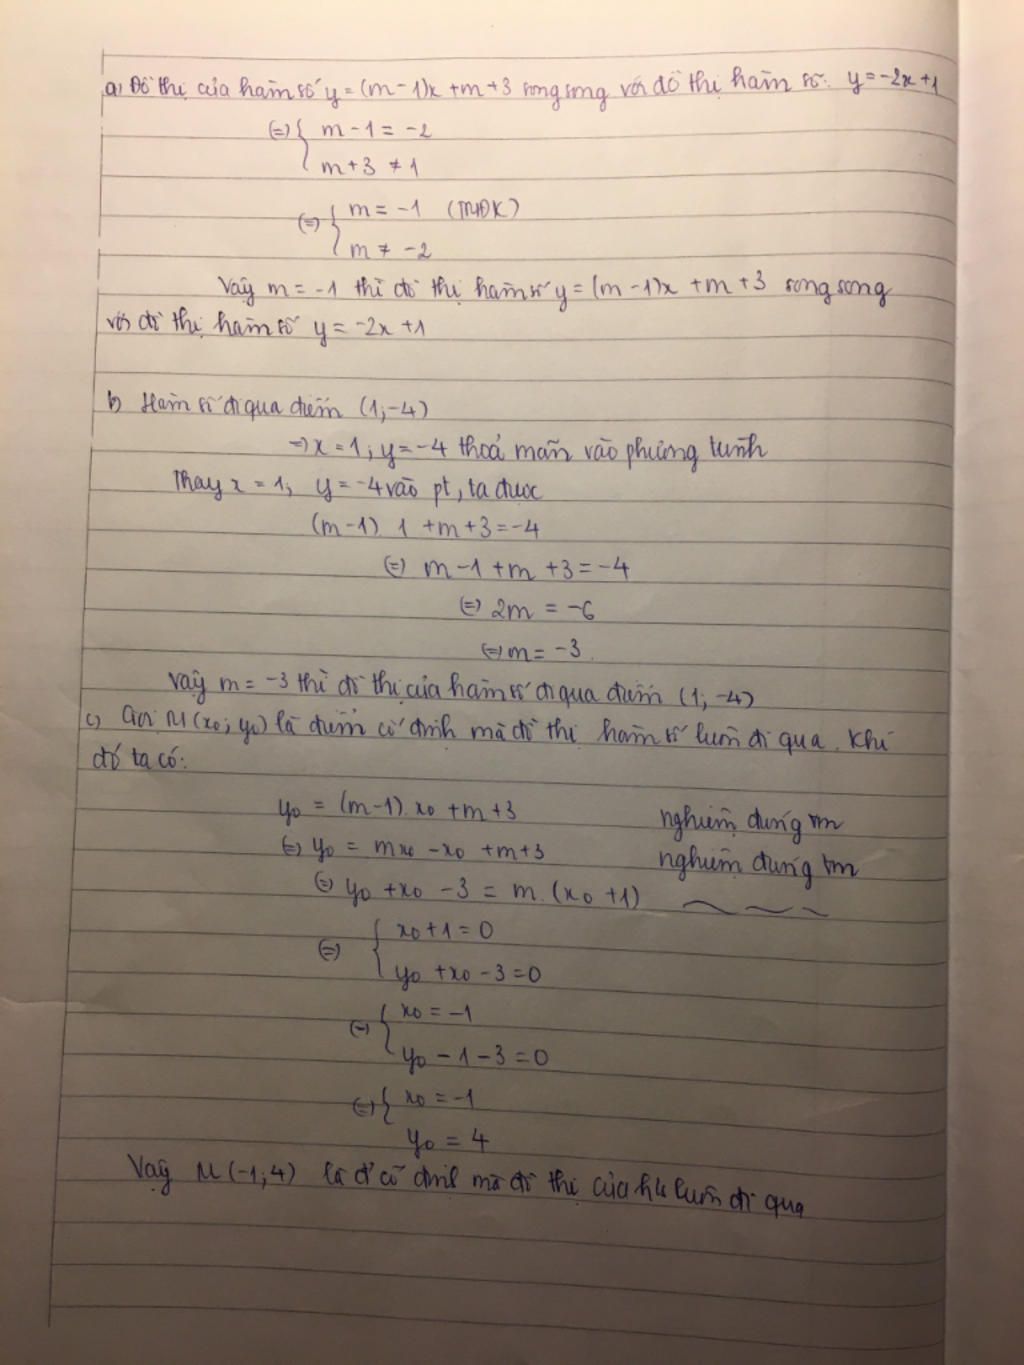 a, Đồ thị của hàm số y = (m-1)x + m + 3 song song với đồ thị hàm số: y = -2x + 1
(=) { m - 1 = -2
m + 3 ≠ 1
(=) { m = -1 (TMĐK)
m ≠ -2
Vậy m = -1 thì đồ thị hàm số y = (m-1)x + m + 3 song song
với đồ thị hàm số y = -2x + 1
b, Hàm số đi qua điểm (1; -4)
=> x = 1; y = -4 thoả mãn vào phương trình
Thay x = 1; y = -4 vào pt, ta được
(m-1). 1 + m + 3 = -4
(=) m - 1 + m + 3 = -4
(=) 2m = -6
(=) m = -3.
Vậy m = -3 thì đồ thị của hàm số đi qua điểm (1; -4)
c, Gọi M(x₀; y₀) là điểm cố định mà đồ thị hàm số luôn đi qua. Khi
đó ta có:
y₀ = (m-1). x₀ + m + 3 nghiệm đúng ∀m
(=) y₀ = mx₀ - x₀ + m + 3 nghiệm đúng ∀m
(=) y₀ + x₀ - 3 = m. (x₀ + 1) ~ ~ ~
(=) { x₀ + 1 = 0
y₀ + x₀ - 3 = 0
(=) { x₀ = -1
y₀ - 1 - 3 = 0
(=) { x₀ = -1
y₀ = 4
Vậy M(-1; 4) là đ' cố định mà đồ thị của hs luôn đi qua